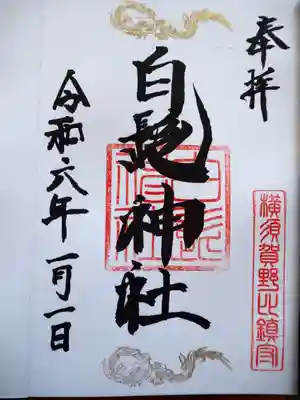 奉拝
横須賀野比鎮守
白髭神社
令和六年一月一日